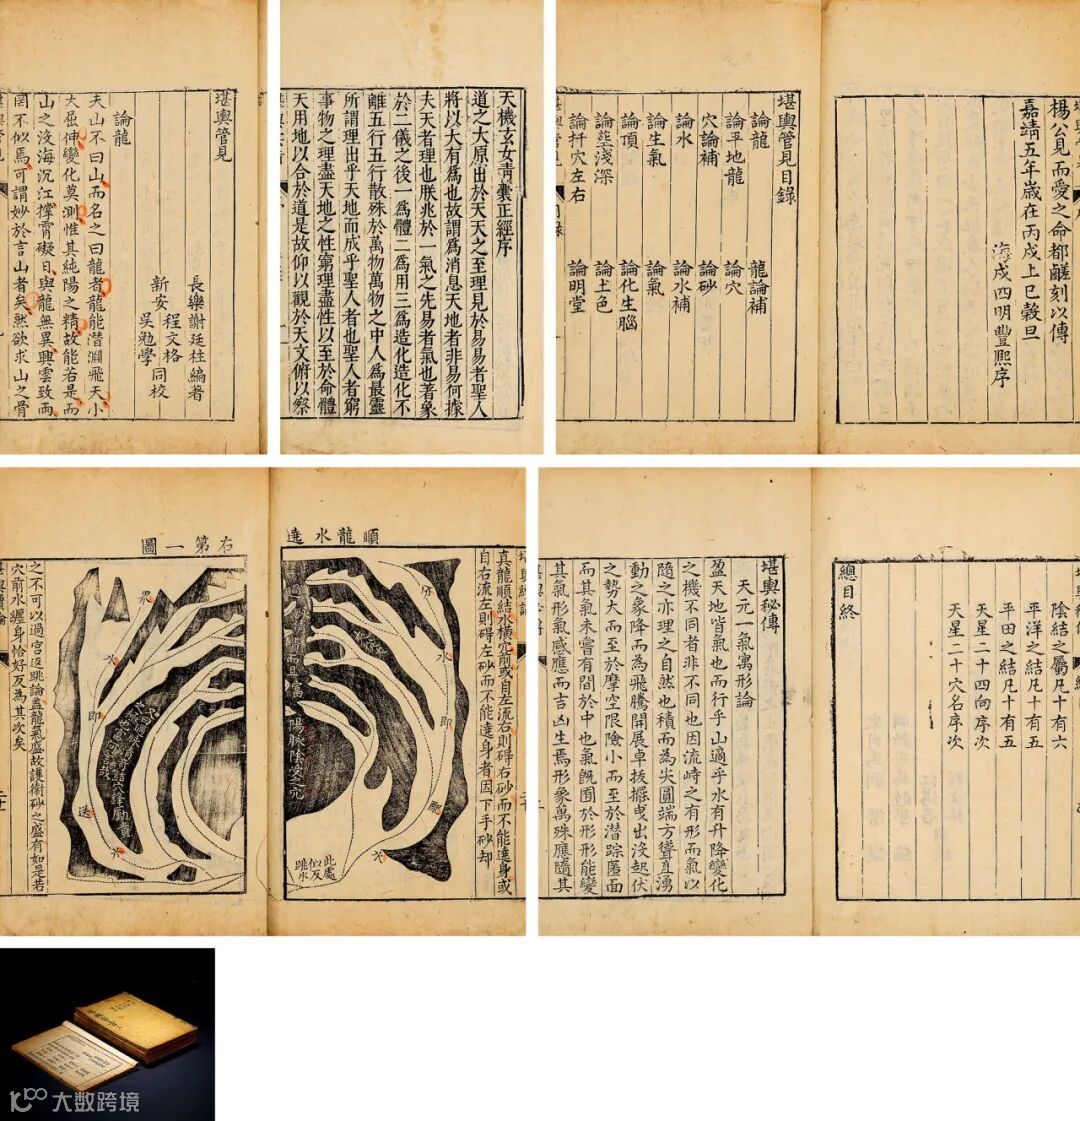 堪輿管見
長樂謝廷柱編著
新安
程文格
吳勉學
同校
論龍
夫山不曰山而名之曰龍者龍能潛淵飛天小
大屈伸變化莫測惟其純陽之精故能若是而
山之沒海沉江撑霄礙日與龍無異興雲致雨
罔不似焉可謂妙於言山者矣然欲求山之骨
天機玄女青囊正經序
道之大原出於天天之至理見於易易者聖人
將以大有爲也故謂爲消息天地者非易何據
夫天者理也朕兆於一氣之先易者氣也著象
於二儀之後一爲體二爲用三爲造化造化不
離五行五行散殊於萬物萬物之中人爲最靈
所謂理出乎天地而成乎聖人者也聖人者窮
事物之理盡天地之性窮理盡性以至於命體
天用地以合於道是故仰以觀於天文俯以察
楊公見而愛之命都鹺刻以傳
嘉靖五年歲在丙戌上巳穀旦
海戍四明豐熙序
堪輿管見目錄
論龍
龍論補
論平地龍
論穴
穴論補
論砂
論水
論水補
論生氣
論氣
論頂
論化生腦
論塟淺深
論土色
論扦穴左右
論明堂
順龍水遶
右第一圖
真龍順結水橫穴前或自左流右則碍右砂而不能遶身或
自右流左則碍左砂而不能遶身者因下手砂却
分
水
即
龍
水
此處
似反
跳水
陽脉陰交穴
眾
水
即
送
水
之不可以過宫返跳論盖龍氣盛故護衛砂之盛有如是若
穴前水纏身恰好反為其次矣
陰結之屬凡十有六
平洋之結凡十有五
平田之結凡十有五
天星二十四向序次
天星二十穴名序次
總目終
堪輿秘傳
天元一氣寓形論
盈天地皆氣也而行乎山適乎水有升降變化
之機不同者非不同也因流峙之有形而氣以
隨之亦理之自然也積而為尖圓端方聳直湧
動之象降而為飛騰開展卓拔擺曳出没起伏
之勢大而至於摩空限險小而至於潜踪匿面
而其氣未嘗有間於中也氣既囿於形形能變
其氣形氣感應而吉凶生焉形象萬殊應隨其
大数跨境